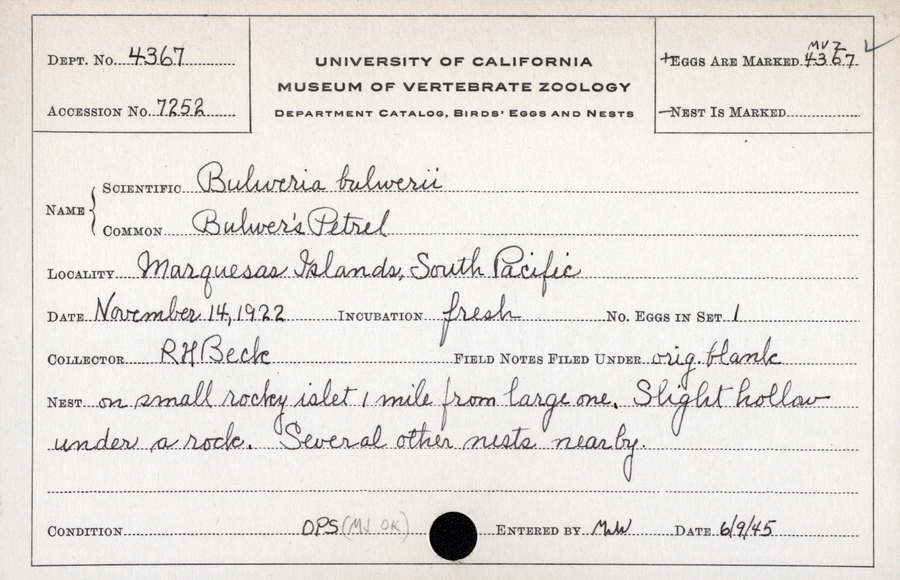 DEPT. No. 4367
ACCESSION No. 7252
UNIVERSITY OF CALIFORNIA
MUSEUM OF VERTEBRATE ZOOLOGY
DEPARTMENT CATALOG, BIRDS' EGGS AND NESTS
MVZ
+EGGS ARE MARKED 4367 ✓
—NEST IS MARKED
NAME
SCIENTIFIC Bulweria bulwerii
COMMON Bulwer's Petrel
LOCALITY Marquesas Islands, South Pacific
DATE November 14, 1922 INCUBATION fresh No. EGGS IN SET 1
COLLECTOR RH Beck FIELD NOTES FILED UNDER orig. blank
NEST on small rocky islet 1 mile from large one. Slight hollow
under a rock. Several other nests nearby.
CONDITION OPS (MJ OK) ENTERED BY MW DATE 6/9/45